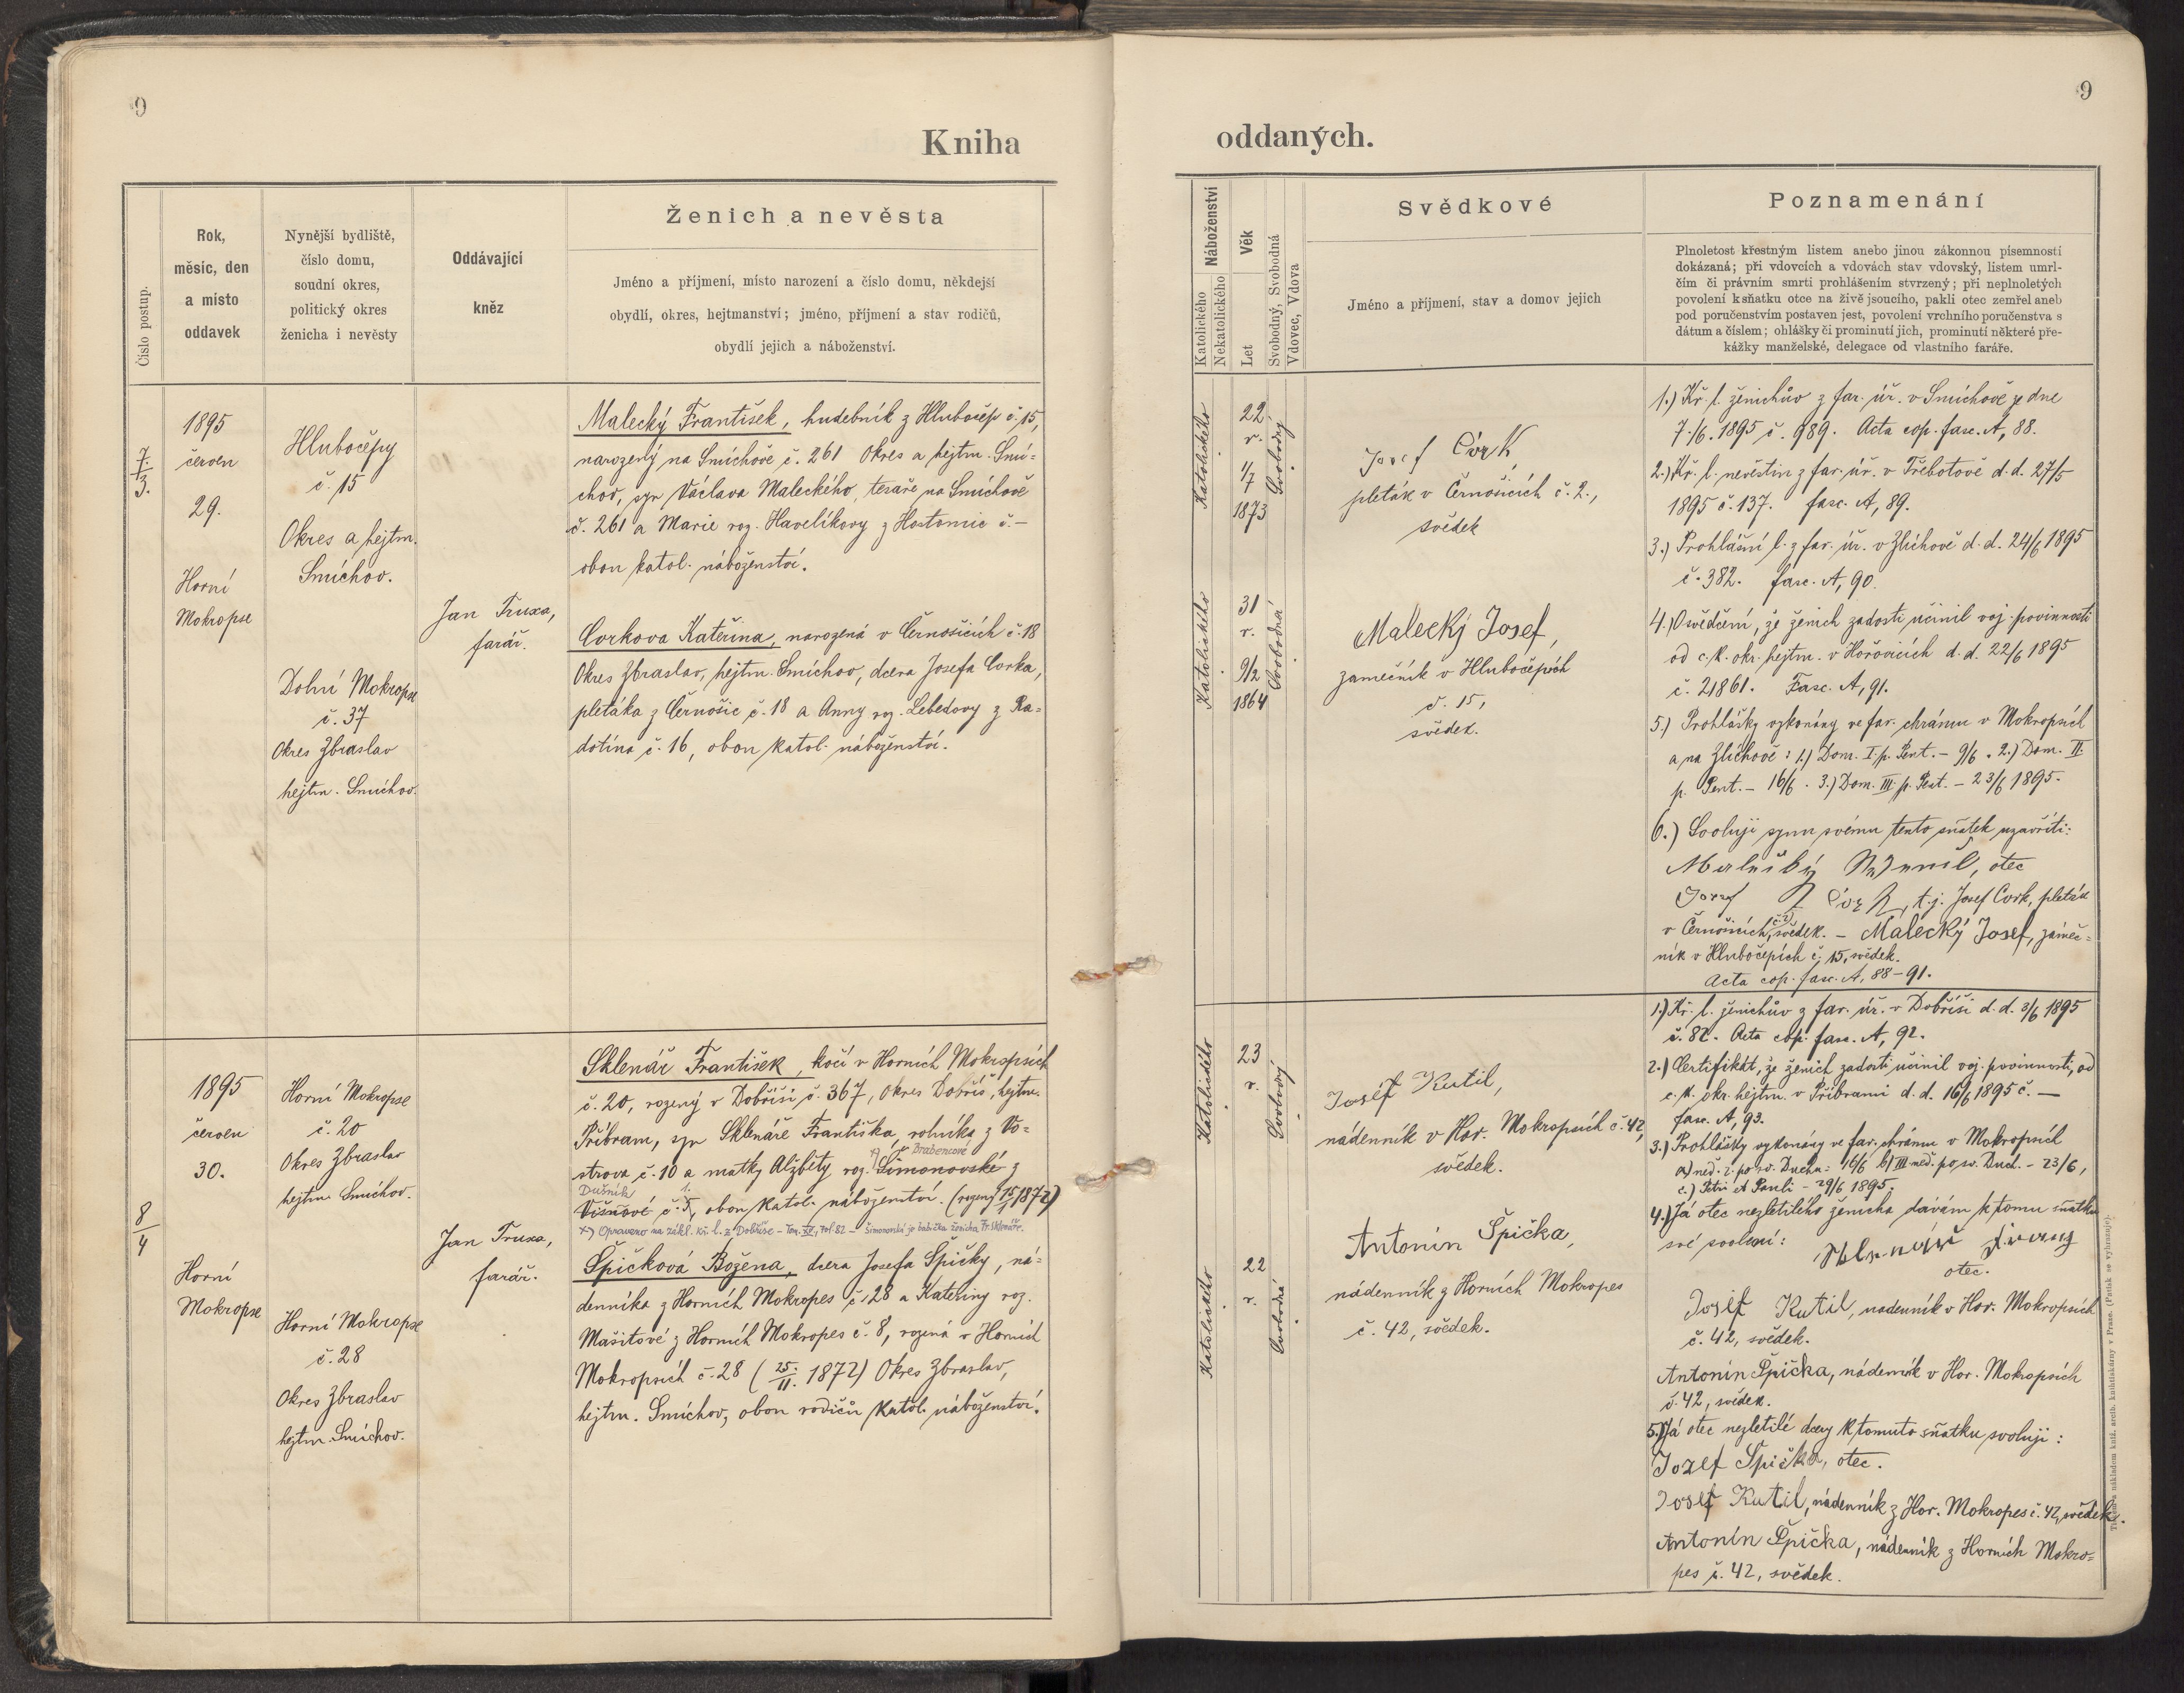 9
Kniha
Číslo postup.
Rok,
měsíc, den
a místo
oddavek
Nynější bydliště,
číslo domu,
soudní okres,
politický okres
ženicha i nevěsty
Oddávající
kněz
Ženich a nevěsta
Jméno a příjmení, místo narození a číslo domu, někdejší
obydlí, okres, hejtmanství; jméno, příjmení a stav rodičů,
obydlí jejich a náboženství.
7.
3.
1895
červen
29.
Horní
Mokropse
Hlubočepy
č. 15
Okres a hejtm.
Smíchov.
Dolní Mokropse
č. 37
Okres Zbraslav
hejtm. Smíchov.
Jan Truxa,
farář.
Malecký František, hudebník z Hlubočep č. 15,
narozený na Smíchově č. 261 Okres a hejtm. Smí-
chov, syn Václava Maleckého, tesaře na Smíchově
č. 261 a Marie roz. Havelíkovy z Hostomic č. –
obou katol. náboženství.
Corkova Kateřina, narozená v Černošicích č. 18
Okres Zbraslav, hejtm. Smíchov, dcera Josefa Corka,
pletáka z Černošic č. 18 a Anny roz. Lebedovy z Ra-
dotína č. 16, obou katol. náboženství.
8
4
1895
červen
30.
Horní
Mokropse
Horní Mokropse
č. 20
Okres Zbraslav
hejtm. Smíchov.
Horní Mokropse
č. 28
Okres Zbraslav
hejtm. Smíchov.
Jan Truxa,
farář.
Sklenář František, kočí v Horních Mokropsích
č. 20, rozený v Dobříši č. 367, Okres Dobříš, hejtm.
Příbram, syn Sklenáře Františka, rolníka z Vo-
x) Brabencové
strova č. 10 a matky Alžběty roz. Šimonovské z
Dušník 1.
Višňové č. 5, obou katol. náboženství. (rozený 15/1 1872)
x) Opraveno na zákl. kř. l. z Dobříše – Tom. XV, fol. 82 – Šimonovská je babička ženicha Fr. Sklenáře.
Špičková Božena, dcera Josefa Špičky, ná-
denníka z Horních Mokropes č. 28 a Kateřiny roz.
Mašitové z Horních Mokropes č. 8, rozená v Horních
Mokropsích č. 28 (25./11. 1872) Okres Zbraslav,
hejtm. Smíchov, obou rodičů katol. náboženství.
9
oddaných.
Náboženství
Katolického
Nekatolického
Věk
Let
Svobodný, Svobodná
Vdovec, Vdova
Svědkové
Jméno a příjmení, stav a domov jejich
Poznamenání
Plnoletost křestným listem anebo jinou zákonnou písemností
dokázaná; při vdovcích a vdovách stav vdovský, listem umrl-
čím či právním smrti prohlášením stvrzený; při neplnoletých
povolení k sňatku otce na živě jsoucího, pakli otec zemřel aneb
pod poručenstvím postaven jest, povolení vrchního poručenstva s
dátum a číslem; ohlášky či prominutí jich, prominutí některé pře-
kážky manželské, delegace od vlastního faráře.
Katolického
22
r.
1/7
1873
Svobodný
Josef Cörk
pleták v Černošicích č. 2.,
svědek
Katolického
31
r.
9/2
1864
Svobodná
Malecký Josef,
zámečník v Hlubočepích
č. 15,
svědek.
1.) Kř. l. ženichův z far. úř. v Smíchově ze dne
7./6. 1895 č. 989. Acta cop. fasc. A, 88.
2.) Kř. l. nevěstin z far. úř. v Třebotově d. d. 27/5
1895 č. 137. fasc. A, 89.
3.) Prohlášní l. z far. úř. v Zlíchově d. d. 24/6 1895
č. 382. fasc. A, 90.
4.) Osvědčení, že ženich zadosti učinil voj. povinnosti
od c. k. okr. hejtm. v Hořovicích d. d. 22/6 1895
č. 21861. Fasc. A, 91.
5.) Prohlášky vykonány ve far. chrámu v Mokropsích
a na Zlíchově: 1.) Dom. I. p. Pent. – 9/6. 2.) Dom. II.
p. Pent. – 16/6. 3.) Dom. III. p. Pent. – 23/6 1895.
6.) Svoluji synu svému tento sňatek uzavříti:
otec
Josef Cörk, t. j. Josef Cork, pleták
v Černošicích, č. 2, svědek. – Malecký Josef, zámeč-
ník v Hlubočepích č. 15, svědek.
Acta cop. fasc. A, 88–91.
Katolického
23
r.
Svobodný
Josef Kutil,
nádenník v Hor. Mokropsích č. 42,
svědek.
Katolického
22
r.
Svobodná
Antonín Špička,
nádenník z Horních Mokropes
č. 42, svědek.
1.) Kř. l. ženichův z far. úř. v Dobříši d. d. 3/6 1895
č. 82. Acta cop. fasc. A, 92.
2.) Certifikát, že ženich zadosti učinil voj. povinnosti, od
c. k. okr. hejtm. v Příbrami d. d. 16/6 1895 č. —
fasc. A, 93.
3.) Prohlášky vykonány ve far. chrámu v Mokropsích
a) neď. 2. po sv. Duchu: 16/6 b) III. neď. po sv. Duch. – 23/6,
c.) Petri et Pauli – 29/6 1895.
4.) Já otec nezletilého ženicha dávám k tomu sňatku
své svolení:
otec.
Josef Kutil, nadenník v Hor. Mokropsích
č. 42, svědek.
Antonín Špička, nádenník v Hor. Mokropsích
č. 42, svědek.
5.) Já otec nezletilé dcery k tomuto sňatku svoluji:
Jozef Špička, otec.
Josef Kutil, nádenník z Hor. Mokropes č. 42, svědek.
Antonín Špička, nádenník z Horních Mokro-
pes č. 42, svědek.